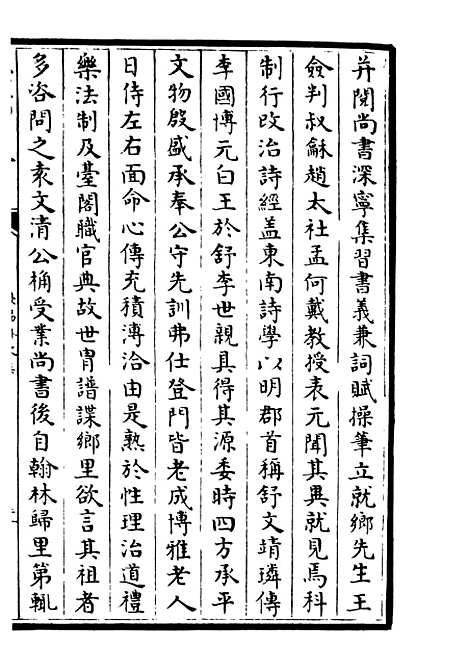 并閱尚書深寧集習書義兼詞賦操筆立就鄉先生王
僉判叔龢趙太社孟何戴教授表元聞其異就見焉科
制行改治詩經盖東南詩學以明郡首稱舒文靖璘傳
李國博元白王於舒李世親具得其源委時四方承平
文物殷盛承奉公守先訓弗仕登門皆老成博雅老人
日侍左右面命心傳充積溥洽由是熟於性理治道禮
樂法制及臺閣職官典故世胄譜諜鄉里欲言其祖者
多咨問之袁文清公桷受業尚書後自翰林歸里第輒